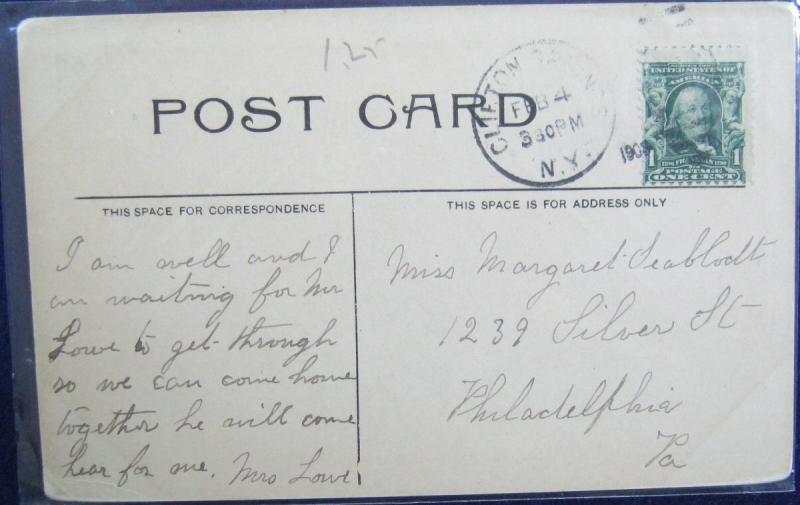 1.25
POST CARD
CLIFTON
FEB 4
330PM
N.Y.
190
UNITED STATES OF
AMERICA
1 FRANKLIN 1
POSTAGE
ONE CENT
THIS SPACE FOR CORRESPONDENCE
THIS SPACE IS FOR ADDRESS ONLY
I am well and I
am waiting for Mr
Lowe to get through
so we can come home
together he will come
hear for me. Mrs Lowe
Miss Margaret
1239 Silver St
Philadelphia
Pa